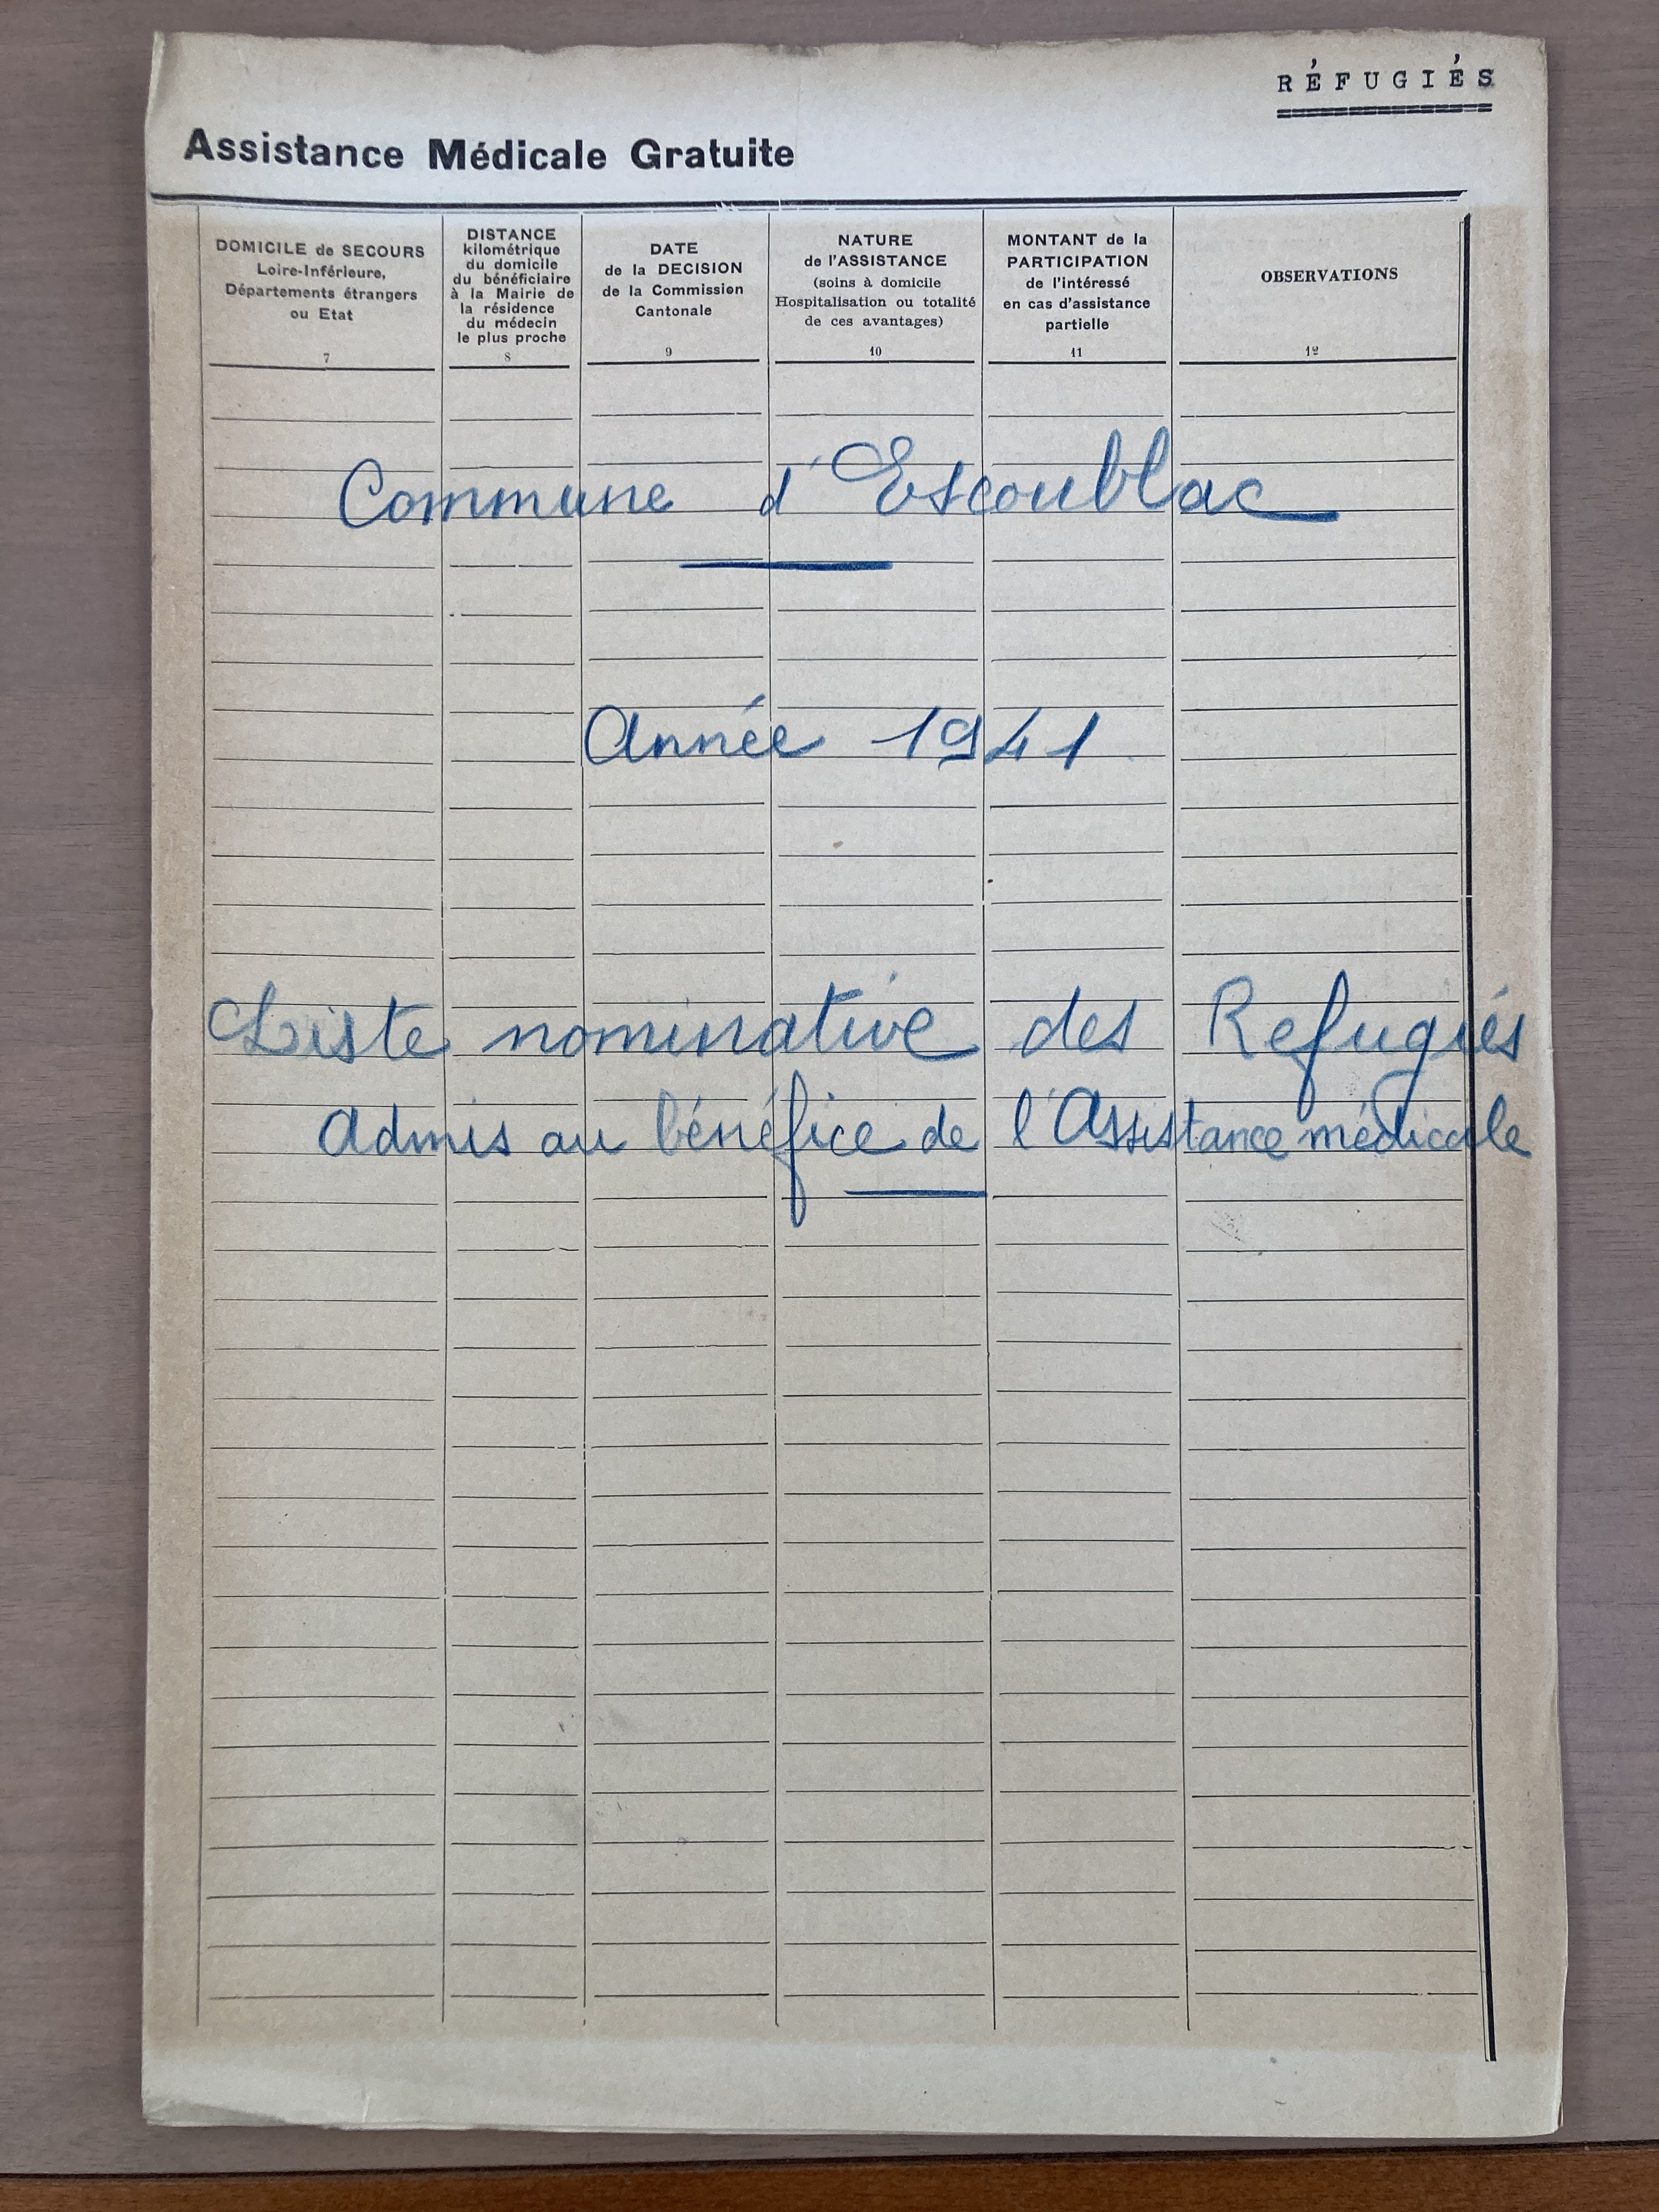 RÉFUGIÉS
Assistance Médicale Gratuite
DOMICILE de SECOURS
Loire-Inférieure,
Départements étrangers
ou Etat
7
DISTANCE
kilométrique
du domicile
du bénéficiaire
à la Mairie de
la résidence
du médecin
le plus proche
8
DATE
de la DECISION
de la Commission
Cantonale
9
NATURE
de l'ASSISTANCE
(soins à domicile
Hospitalisation ou totalité
de ces avantages)
10
MONTANT de la
PARTICIPATION
de l'intéressé
en cas d'assistance
partielle
11
OBSERVATIONS
12
Commune d'Escoublac
Année 1941
Liste nominative des Refugiés
Admis au bénéfice de l'Assistance médicale